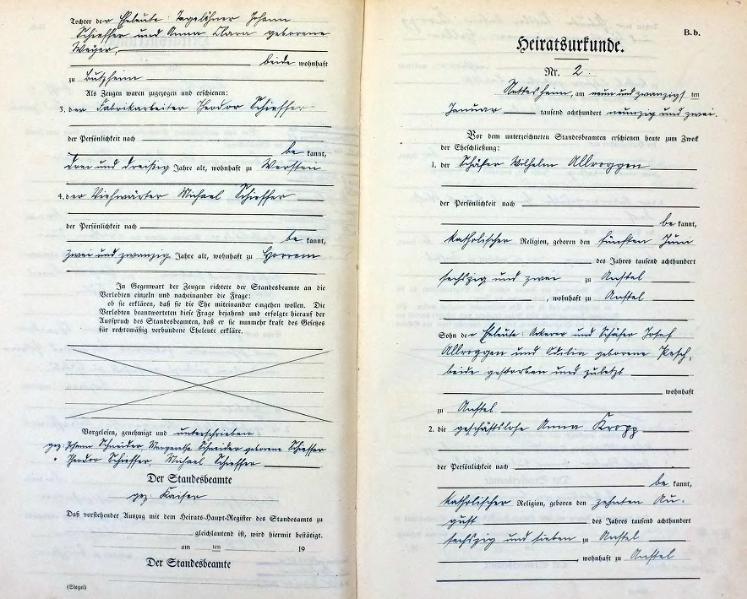 Tochter der Eheleute: Tagelöhner Johann
Schieffer und Anna Clara geborene
Weyer, beide wohnhaft
zu Butzheim
Als Zeugen waren zugezogen und erschienen:
3. der Fabrikarbeiter Theodor Schieffer
der Persönlichkeit nach
be kannt,
drei und dreißig Jahre alt, wohnhaft zu Wersten
4. der Viehwärter Michael Schieffer
der Persönlichkeit nach
be kannt,
zwei und zwanzig Jahre alt, wohnhaft zu Horrem
In Gegenwart der Zeugen richtete der Standesbeamte an die
Verlobten einzeln und nacheinander die Frage:
ob sie erklären, daß sie die Ehe miteinander eingehen wollen. Die
Verlobten beantworteten diese Frage bejahend und erfolgte hierauf der
Ausspruch des Standesbeamten, daß er sie nunmehr kraft des Gesetzes
für rechtmäßig verbundene Eheleute erkläre.
Vorgelesen, genehmigt und unterschrieben
gez. Johann Schneider, Margaretha Schneider geborene Schieffer
" Theodor Schieffer, Michael Schieffer
Der Standesbeamte
gez. Kaiser
Daß vorstehender Auszug mit dem Heirats-Haupt-Register des Standesamts zu
gleichlautend ist, wird hiermit bestätigt.
am ten 19
Der Standesbeamte
(Siegel)
B. b.
Heiratsurkunde.
Nr. 2.
Nettesheim, am neun und zwanzigs ten
Januar tausend achthundert neunzig und zwei.
Vor dem unterzeichneten Standesbeamten erschienen heute zum Zweck
der Eheschließung:
1. der Schäfer Wilhelm Allroggen
der Persönlichkeit nach
be kannt,
katholischer Religion, geboren den fünften Juni
des Jahres tausend achthundert
sechszig und zwei zu Anstel
, wohnhaft zu Anstel
Sohn der Eheleute: Ackerer und Schäfer Josef
Allroggen und geborene Pesch,
beide gestorben und zuletzt
wohnhaft
zu Anstel
2. die geschäftslose Anna Kropp
der Persönlichkeit nach
be kannt,
katholischer Religion, geboren den zehnten Au-
gust des Jahres tausend achthundert
sechszig und sieben zu Anstel
, wohnhaft zu Anstel